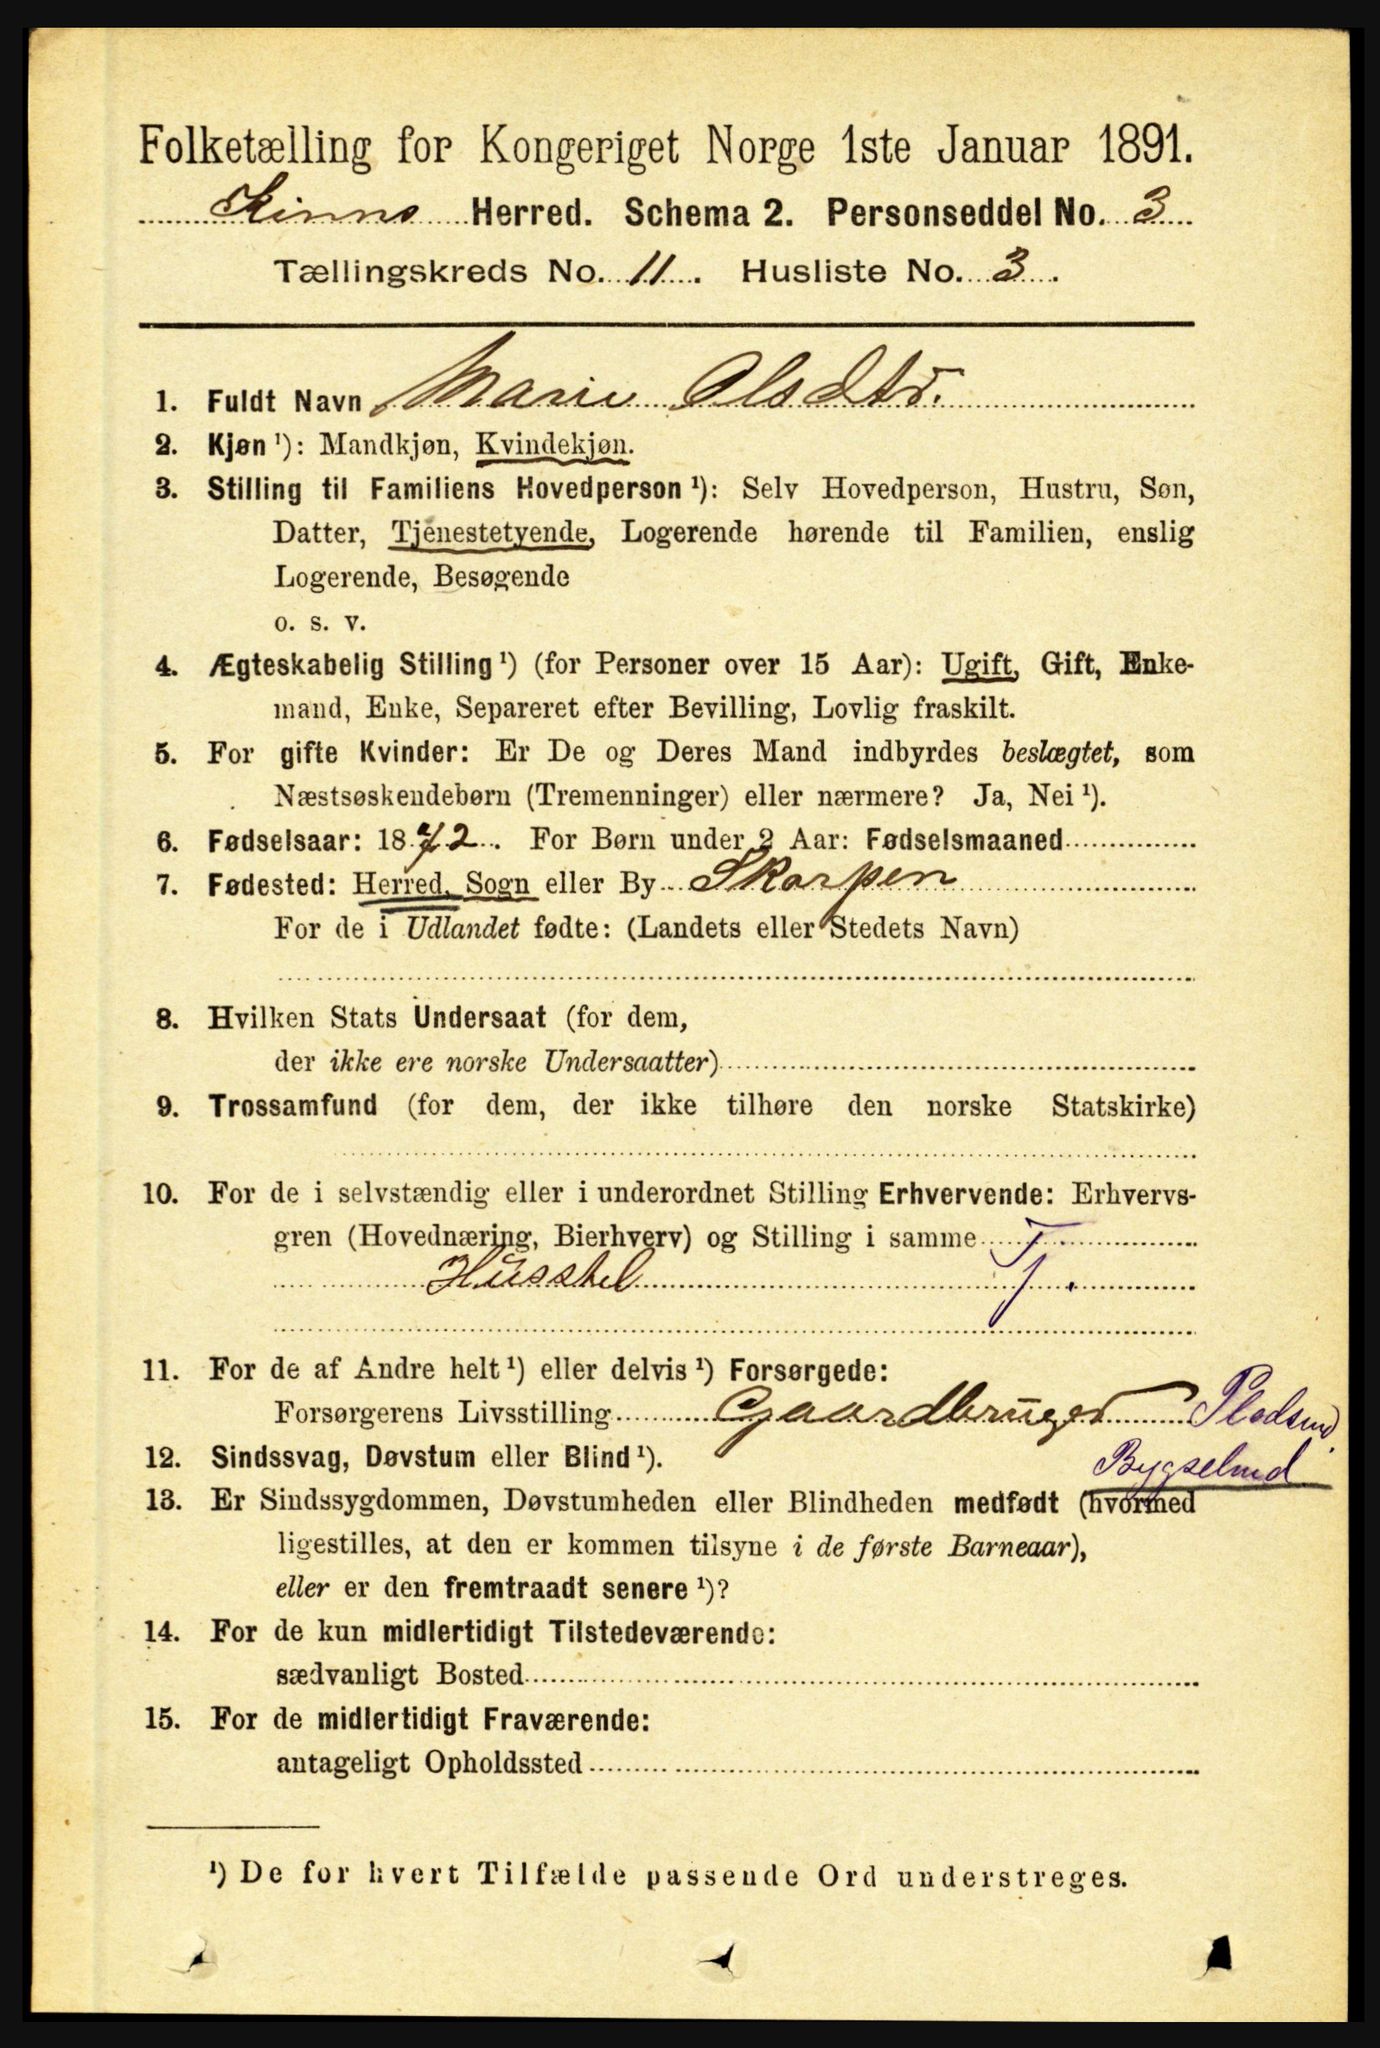 Folketælling for Kongeriget Norge 1ste Januar 1891.
Kinns Herred. Schema 2. Personseddel No. 3
Tællingskreds No. 11. Husliste No. 3.
1. Fuldt Navn Marie Olsdtr.
2. Kjøn ¹): Mandkjøn, Kvindekjøn.
3. Stilling til Familiens Hovedperson ¹): Selv Hovedperson, Hustru, Søn,
Datter, Tjenestetyende, Logerende hørende til Familien, enslig
Logerende, Besøgende
o. s. v.
4. Ægteskabelig Stilling ¹) (for Personer over 15 Aar): Ugift, Gift, Enke-
mand, Enke, Separeret efter Bevilling, Lovlig fraskilt.
5. For gifte Kvinder: Er De og Deres Mand indbyrdes beslægtet, som
Næstsøskendebørn (Tremenninger) eller nærmere? Ja, Nei ¹).
6. Fødselsaar: 1872. For Børn under 2 Aar: Fødselsmaaned
7. Fødested: Herred, Sogn eller By Skorpen
For de i Udlandet fødte: (Landets eller Stedets Navn)
8. Hvilken Stats Undersaat (for dem,
der ikke ere norske Undersaatter)
9. Trossamfund (for dem, der ikke tilhøre den norske Statskirke)
10. For de i selvstændig eller i underordnet Stilling Erhvervende: Erhvervs-
gren (Hovednæring, Bierhverv) og Stilling i samme T.
Husstel
11. For de af Andre helt ¹) eller delvis ¹) Forsørgede:
Forsørgerens Livsstilling Gaardbruger
12. Sindssvag, Døvstum eller Blind ¹). Bygselmd
13. Er Sindssygdommen, Døvstumheden eller Blindheden medfødt (hvormed
ligestilles, at den er kommen tilsyne i de første Barneaar),
eller er den fremtraadt senere ¹)?
14. For de kun midlertidigt Tilstedeværende:
sædvanligt Bosted
15. For de midlertidigt Fraværende:
antageligt Opholdssted
¹) De for hvert Tilfælde passende Ord understreges.